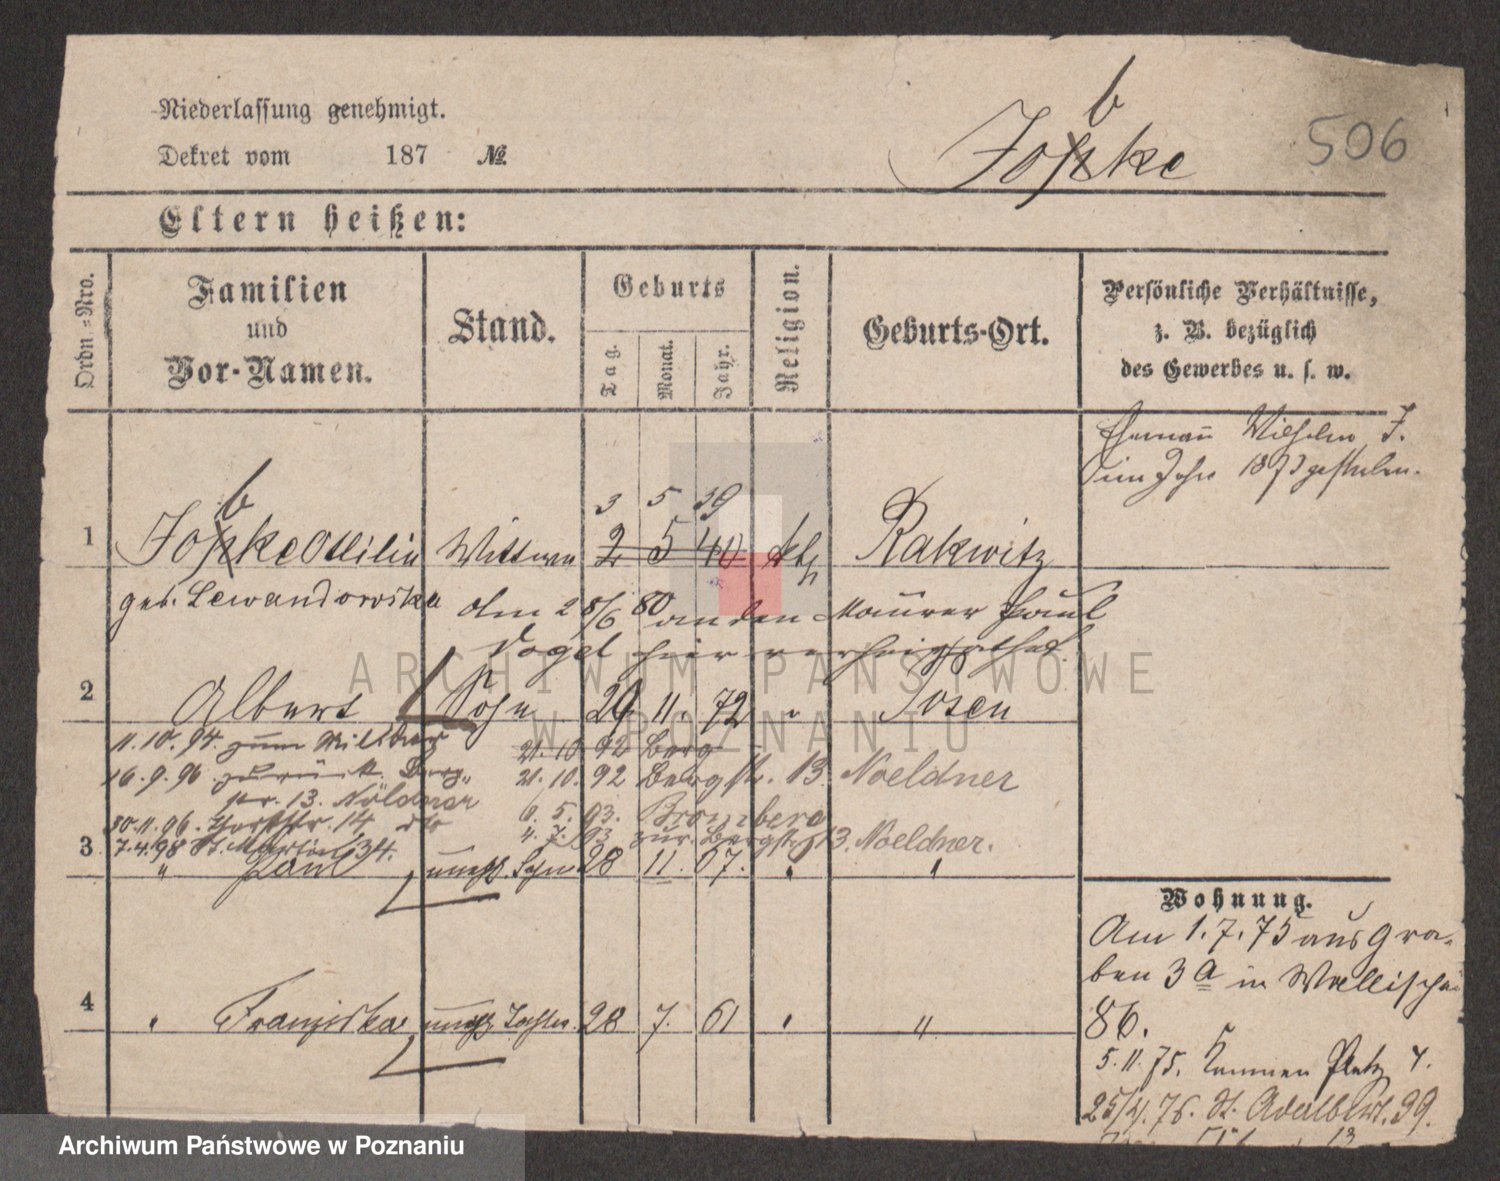 Niederlassung genehmigt.
Dekret vom 187 №
Jopke
b
506
Eltern heißen:
Ordn=Nro.
Familien
und
Vor-Namen.
Stand.
Geburts
Tag.
Monat.
Jahr.
Religion.
Geburts-Ort.
Persönliche Verhältnisse,
z. B. bezüglich
des Gewerbes u. s. w.
Ehemann Wilhelm J.
im Jahr 1873 gestorben.
b
3 5 39
1 Jopke Ottilie Wittwe 2 5 40 kth Rakwitz
geb. Lewandowska Am 28/6 80 an den Maurer Paul
Vogel hier verheirathet.
2 Albert Sohn 29 11. 72 " Posen
11.10.94. zum Militär 21.10.92 Berg
16.9.96 zurück Berg- 21.10.92 Bergstr. 13 Noeldner
str. 13. Nöldner 6.5.93. Bromberg
30.11.96. 14 4.7.93 zur. Bergstr. 13. Noeldner.
7.4.98 St. Martin 34.
3 " Paul unehl. Sohn 28 11. 67. " "
4 " Franziska unehl. Tochter 28 7. 61 " "
Wohnung.
Am 1.7.75 aus Gra-
ben 3a in Wallischei
86.
5.11.75. Platz 4.
25/4.76. St. Adalbert. 39.
ARCHIWUM PAŃSTWOWE
W POZNANIU
Archiwum Państwowe w Poznaniu